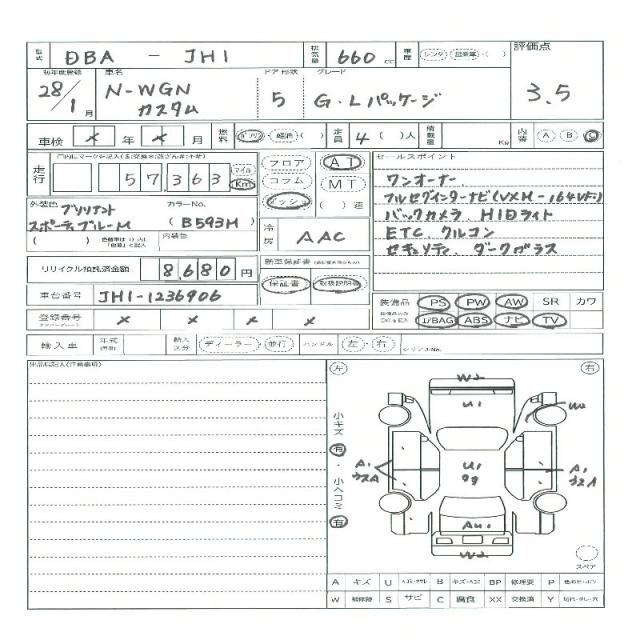 型式 DBA - JH1 排気量 660 cc 車歴 レンタ・自家車・( ) 評価点
初年度登録 車名 ドア形状 グレード
28/1 月 N-WGN カスタム 5 G・Lパッケージ 3.5
車検 × 年 × 月 燃料 ガソリン・軽油・( ) 定員 4 ( )人 積載量 Kg 内装 A B C
走行 57,363 マイル Km
フロア コラム ダッシュ
AT MT ( )速
セールスポイント
ワンオーナー
フルセグインターナビ(VXM-164VFi)
バックカメラ HIDライト
ETC クルコン
セキュリティ ダークガラス
外装色 ブリリアントスポーティブルーM
カラーNo. (B593M)
内装色
冷房 AAC
リサイクル預託済金額 8,680円
新車保証書
保証書 取扱説明書
車台番号 JH1-1236906
装備品 PS PW AW SR カワ
エアBAG ABS ナビ TV
登録番号 × × × ×
輸入車 年式 輸入区分 ディーラー・並行 ハンドル 左・右 シリアルNo.
出品店記入(注意事項)
左 右
小キズ 有・小ヘコミ 有
W2
U1
W2
A1 U1 A1
Au1
W2
スペア
A キズ U B BP 修理要 P
W S サビ C 腐食 XX 交換済 Y